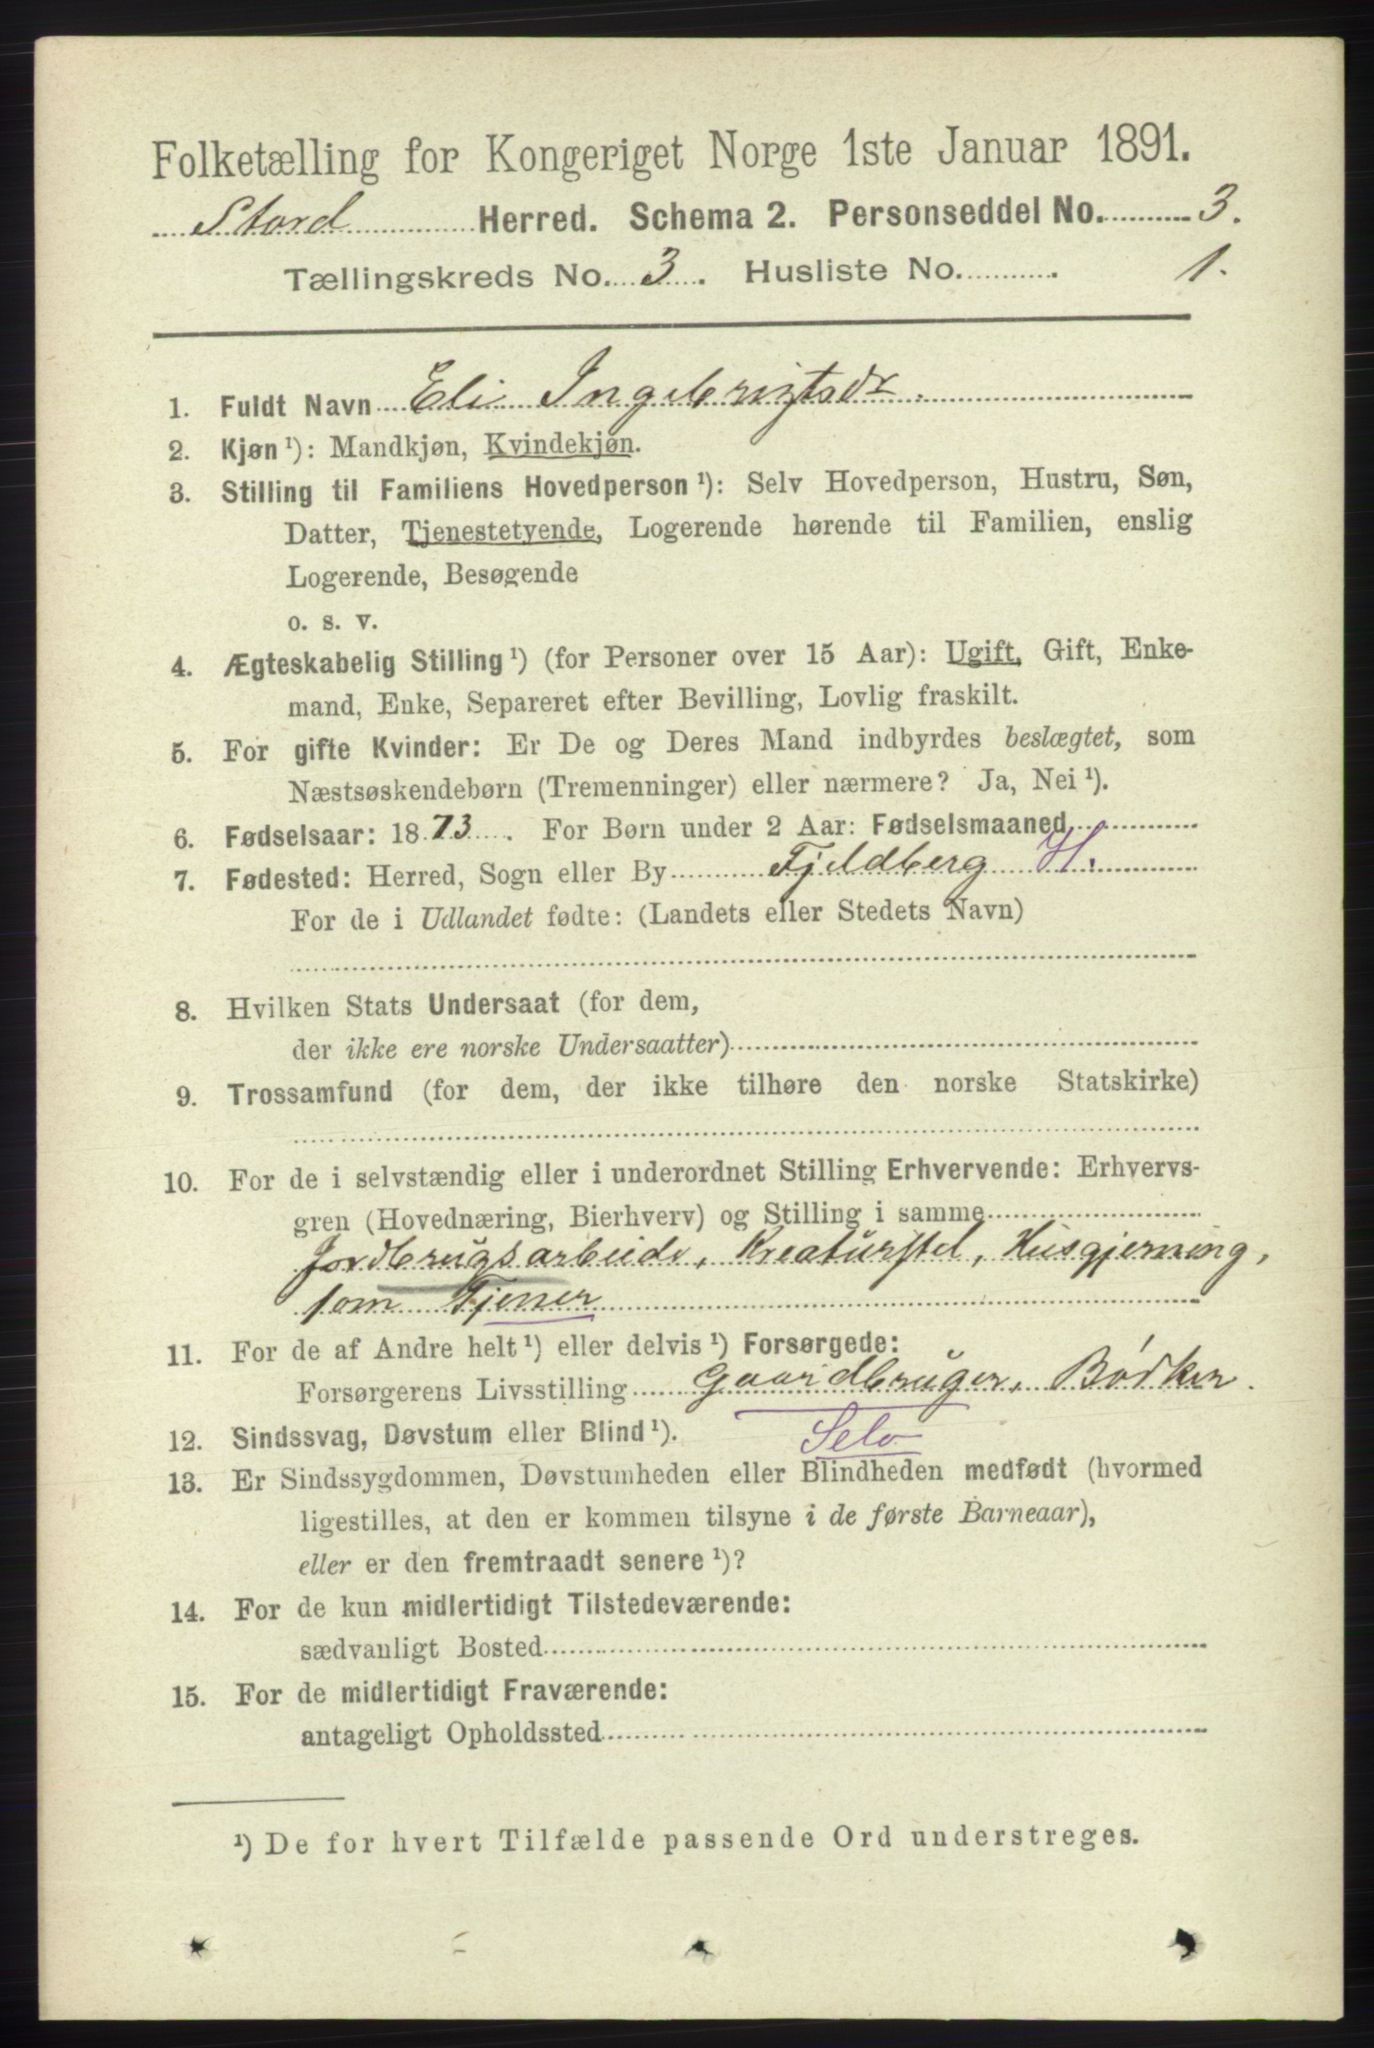 Folketælling for Kongeriget Norge 1ste Januar 1891.
Stord Herred. Schema 2. Personseddel No. 3.
Tællingskreds No. 3. Husliste No. 1.
1. Fuldt Navn Eli Ingebrigtsdr.
2. Kjøn ¹): Mandkjøn, Kvindekjøn.
3. Stilling til Familiens Hovedperson ¹): Selv Hovedperson, Hustru, Søn,
Datter, Tjenestetyende, Logerende hørende til Familien, enslig
Logerende, Besøgende
o. s. v.
4. Ægteskabelig Stilling ¹) (for Personer over 15 Aar): Ugift, Gift, Enke-
mand, Enke, Separeret efter Bevilling, Lovlig fraskilt.
5. For gifte Kvinder: Er De og Deres Mand indbyrdes beslægtet, som
Næstsøskendebørn (Tremenninger) eller nærmere? Ja, Nei ¹).
6. Fødselsaar: 1873. For Børn under 2 Aar: Fødselsmaaned
7. Fødested: Herred, Sogn eller By Fjeldberg H.
For de i Udlandet fødte: (Landets eller Stedets Navn)
8. Hvilken Stats Undersaat (for dem,
der ikke ere norske Undersaatter)
9. Trossamfund (for dem, der ikke tilhøre den norske Statskirke)
10. For de i selvstændig eller i underordnet Stilling Erhvervende: Erhvervs-
gren (Hovednæring, Bierhverv) og Stilling i samme
Jordbrugsarbeide, Kreaturstel, Husgjerning,
som Tjener
11. For de af Andre helt ¹) eller delvis ¹) Forsørgede:
Forsørgerens Livsstilling Gaardbruger, Bødker.
12. Sindssvag, Døvstum eller Blind ¹). Selv
13. Er Sindssygdommen, Døvstumheden eller Blindheden medfødt (hvormed
ligestilles, at den er kommen tilsyne i de første Barneaar),
eller er den fremtraadt senere ¹)?
14. For de kun midlertidigt Tilstedeværende:
sædvanligt Bosted
15. For de midlertidigt Fraværende:
antageligt Opholdssted
¹) De for hvert Tilfælde passende Ord understreges.